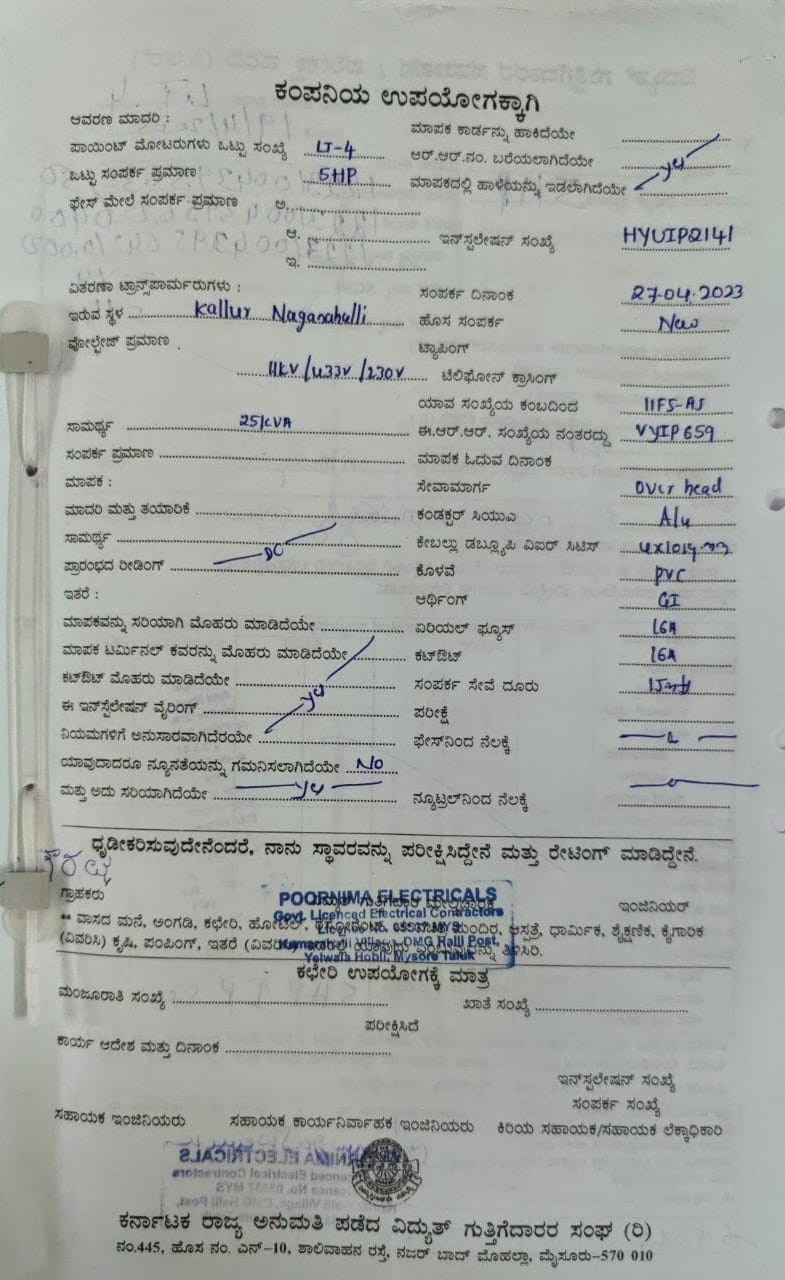 ಕಂಪನಿಯ ಉಪಯೋಗಕ್ಕಾಗಿ
ಆವರಣ ಮಾದರಿ :
ಮಾಪಕ ಕಾರ್ಡನ್ನು ಹಾಕಿದೆಯೇ
ಪಾಯಿಂಟ್ ಮೋಟರುಗಳು ಒಟ್ಟು ಸಂಖ್ಯೆ LT-4
ಆರ್.ಆರ್.ನಂ. ಬರೆಯಲಾಗಿದೆಯೇ
ಒಟ್ಟು ಸಂಪರ್ಕ ಪ್ರಮಾಣ 5HP
ಮಾಪಕದಲ್ಲಿ ಹಾಳೆಯನ್ನು ಇಡಲಾಗಿದೆಯೇ
ಫೇಸ್ ಮೇಲೆ ಸಂಪರ್ಕ ಪ್ರಮಾಣ ಅ.
ಆ. ಇನ್‌ಸ್ಟಲೇಷನ್ ಸಂಖ್ಯೆ HYUIP2141
ಇ.
ವಿತರಣಾ ಟ್ರಾನ್ಸ್‌ಪಾರ್ಮರುಗಳು :
ಸಂಪರ್ಕ ದಿನಾಂಕ 27.04.2023
ಇರುವ ಸ್ಥಳ Kallur Naganahalli
ಹೊಸ ಸಂಪರ್ಕ New
ವೋಲ್ಟೇಜ್ ಪ್ರಮಾಣ
ಟ್ಯಾಪಿಂಗ್
11KV/433V/230V ಟೆಲಿಫೋನ್ ಕ್ರಾಸಿಂಗ್
ಯಾವ ಸಂಖ್ಯೆಯ ಕಂಬದಿಂದ
ಸಾಮರ್ಥ್ಯ 25KVA
ಈ.ಆರ್.ಆರ್. ಸಂಖ್ಯೆಯ ನಂತರದ್ದು VYIP659
ಸಂಪರ್ಕ ಪ್ರಮಾಣ
ಮಾಪಕ ಓದುವ ದಿನಾಂಕ
ಮಾಪಕ :
ಸೇವಾಮಾರ್ಗ Over head
ಮಾದರಿ ಮತ್ತು ತಯಾರಿಕೆ
ಕಂಡಕ್ಟರ್ ಸಿಯುಎ Alu
ಸಾಮರ್ಥ್ಯ
ಕೇಬಲ್ಲು ಡಬ್ಲ್ಯೂಪಿ ವಿಐರ್ ಸಿಟಿಸ್
ಪ್ರಾರಂಭದ ರೀಡಿಂಗ್ DC
ಕೊಳವೆ PVC
ಇತರೆ :
ಆರ್ಥಿಂಗ್ GI
ಮಾಪಕವನ್ನು ಸರಿಯಾಗಿ ಮೊಹರು ಮಾಡಿದೆಯೇ
ಏರಿಯಲ್ ಫ್ಯೂಸ್ 16A
ಮಾಪಕ ಟರ್ಮಿನಲ್ ಕವರನ್ನು ಮೊಹರು ಮಾಡಿದೆಯೇ
ಕಟ್‌ಔಟ್ 16A
ಕಟ್‌ಔಟ್ ಮೊಹರು ಮಾಡಿದೆಯೇ
ಸಂಪರ್ಕ ಸೇವೆ ದೂರು
ಈ ಇನ್‌ಸ್ಟಲೇಷನ್ ವೈರಿಂಗ್
ಪರೀಕ್ಷೆ
ನಿಯಮಗಳಿಗೆ ಅನುಸಾರವಾಗಿದೆರಯೇ
ಫೇಸ್‌ನಿಂದ ನೆಲಕ್ಕೆ
ಯಾವುದಾದರೂ ನ್ಯೂನತೆಯನ್ನು ಗಮನಿಸಲಾಗಿದೆಯೇ NO
ಮತ್ತು ಅದು ಸರಿಯಾಗಿದೆಯೇ
ನ್ಯೂಟ್ರಲ್‌ನಿಂದ ನೆಲಕ್ಕೆ
ಧೃಡೀಕರಿಸುವುದೇನೆಂದರೆ, ನಾನು ಸ್ಥಾವರವನ್ನು ಪರೀಕ್ಷಿಸಿದ್ದೇನೆ ಮತ್ತು ರೇಟಿಂಗ್ ಮಾಡಿದ್ದೇನೆ.
ಗ್ರಾಹಕರು
ಇಂಜಿನಿಯರ್
POORNIMA ELECTRICALS
Govt. Licenced Electrical Contractors
** ವಾಸದ ಮನೆ, ಅಂಗಡಿ, ಕಛೇರಿ, ಹೋಟೆಲ್, ಮಂದಿರ, ಆಸ್ಪತ್ರೆ, ಧಾರ್ಮಿಕ, ಶೈಕ್ಷಣಿಕ, ಕೈಗಾರಿಕ
(ವಿವರಿಸಿ) ಕೃಷಿ, ಪಂಪಿಂಗ್, ಇತರೆ Village, DMG Halli Post,
Yelwala Hobli, Mysore Taluk
ಕಛೇರಿ ಉಪಯೋಗಕ್ಕೆ ಮಾತ್ರ
ಮಂಜೂರಾತಿ ಸಂಖ್ಯೆ
ಖಾತೆ ಸಂಖ್ಯೆ
ಪರೀಕ್ಷಿಸಿದೆ
ಕಾರ್ಯ ಆದೇಶ ಮತ್ತು ದಿನಾಂಕ
ಇನ್‌ಸ್ಟಲೇಷನ್ ಸಂಖ್ಯೆ
ಸಂಪರ್ಕ ಸಂಖ್ಯೆ
ಸಹಾಯಕ ಇಂಜಿನಿಯರು ಸಹಾಯಕ ಕಾರ್ಯನಿರ್ವಾಹಕ ಇಂಜಿನಿಯರು ಕಿರಿಯ ಸಹಾಯಕ/ಸಹಾಯಕ ಲೆಕ್ಕಾಧಿಕಾರಿ
ಕರ್ನಾಟಕ ರಾಜ್ಯ ಅನುಮತಿ ಪಡೆದ ವಿದ್ಯುತ್ ಗುತ್ತಿಗೆದಾರರ ಸಂಘ (ರಿ)
ನಂ.445, ಹೊಸ ನಂ. ಎನ್-10, ಶಾಲಿವಾಹನ ರಸ್ತೆ, ನಜರ್ ಬಾದ್ ಮೊಹಲ್ಲಾ, ಮೈಸೂರು-570 010